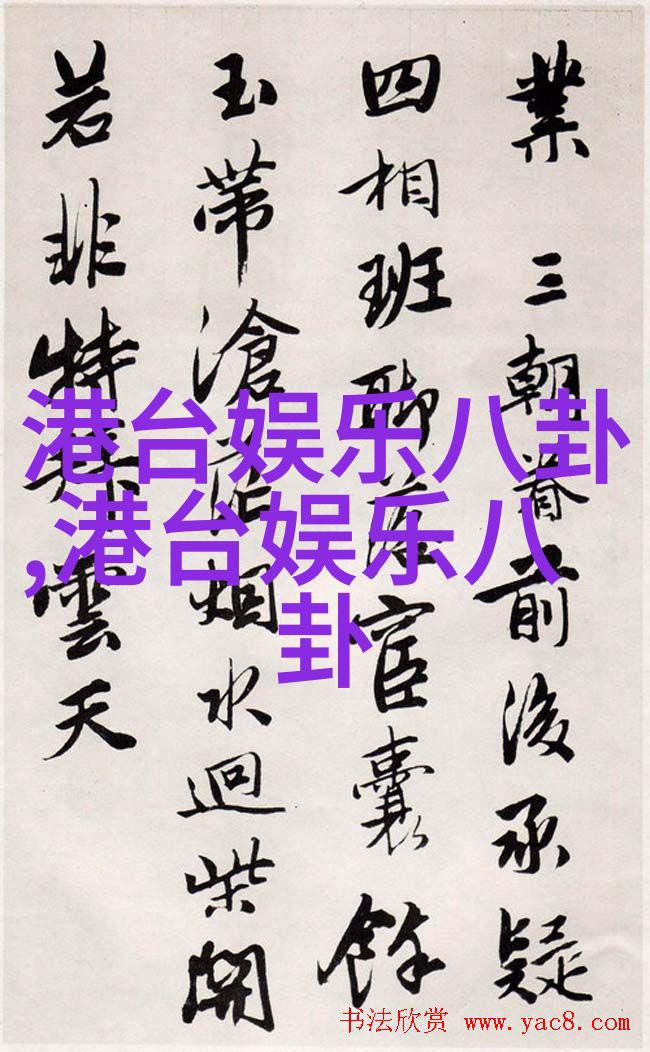 業 三朝眷前後承疑
四相班聯宦囊餘
玉帶滄烟水迴柴
若非特雲天
港台娱乐八卦
,港台娱乐八
卦
书法欣赏 www.yac8.com